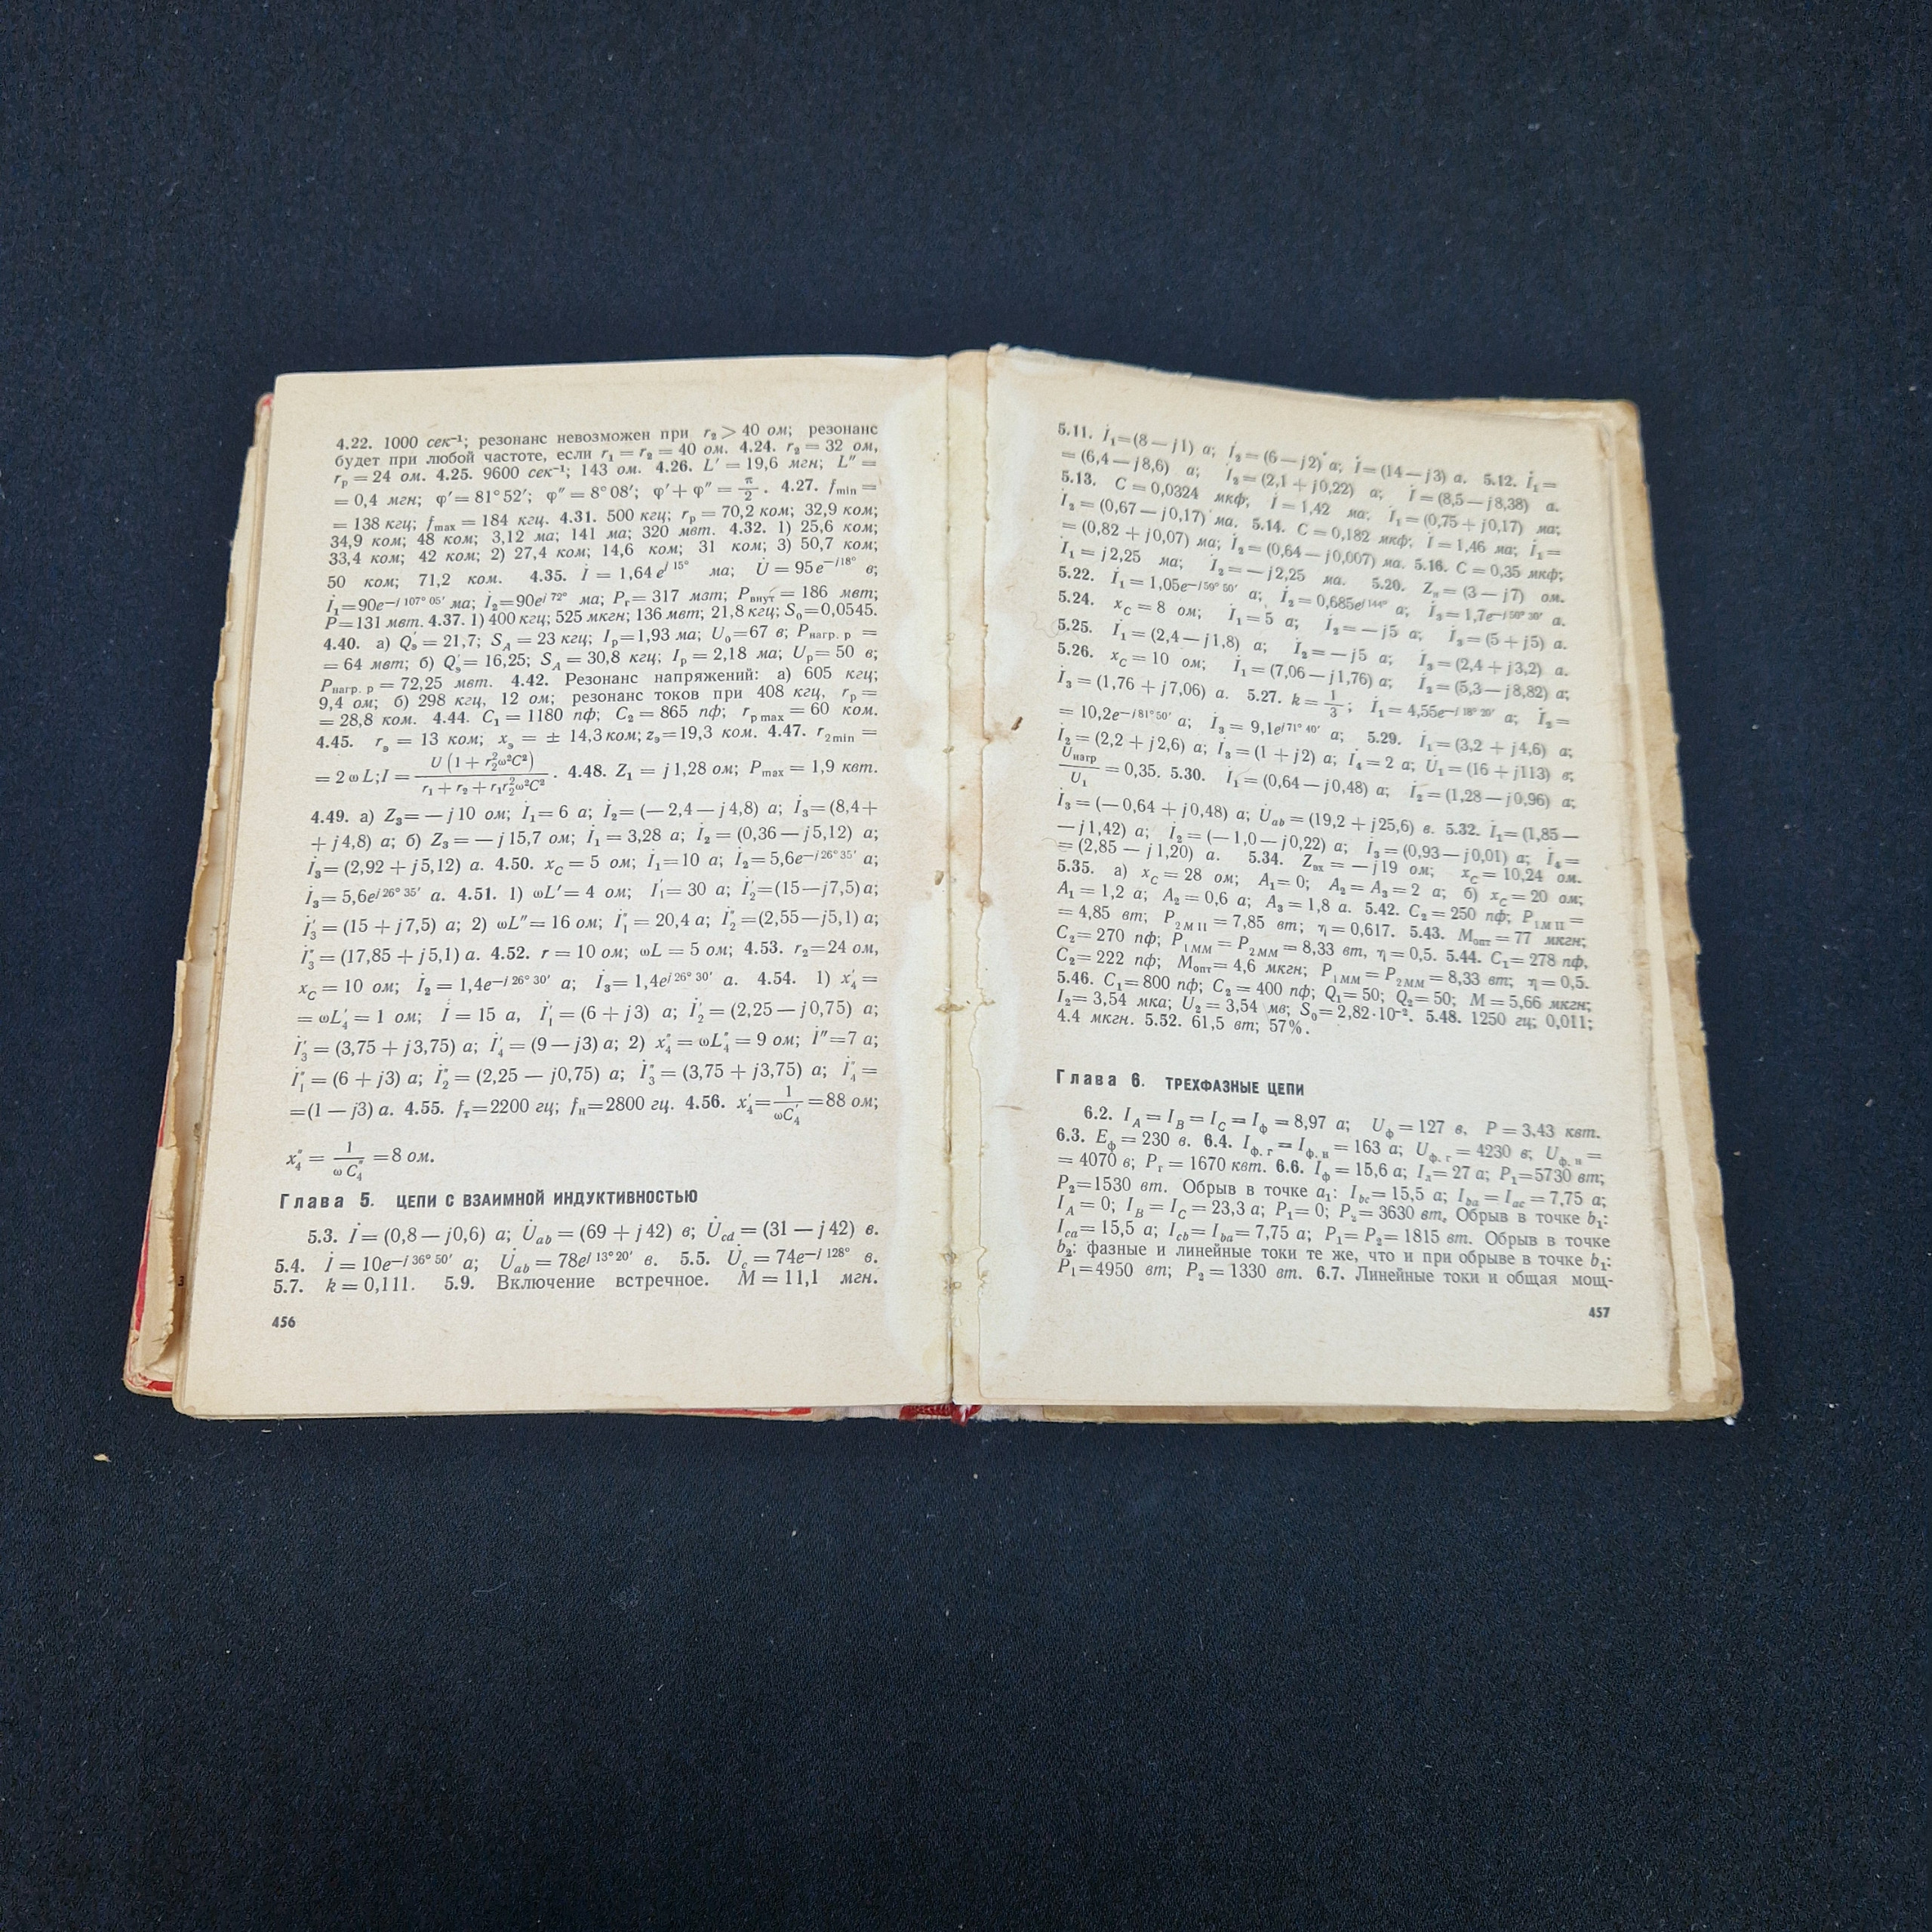 4.22. 1000 сек⁻¹; резонанс невозможен при r₂ > 40 ом; резонанс
будет при любой частоте, если r₁ = r₂ = 40 ом. 4.24. r₂ = 32 ом,
rₚ = 24 ом. 4.25. 9600 сек⁻¹; 143 ом. 4.26. L′ = 19,6 мгн; L″ =
= 0,4 мгн; φ′ = 81° 52′; φ″ = 8° 08′; φ′ + φ″ = π/2. 4.27. f_min =
= 138 кгц; f_max = 184 кгц. 4.31. 500 кгц; r_р = 70,2 ком; 32,9 ком;
34,9 ком; 48 ком; 3,12 ма; 141 ма; 320 мвт. 4.32. 1) 25,6 ком;
33,4 ком; 42 ком; 2) 27,4 ком; 14,6 ком; 31 ком; 3) 50,7 ком;
50 ком; 71,2 ком. 4.35. İ = 1,64e^{j 15°} ма; U̇ = 95e^{−j18°} в;
İ₁=90e^{−j 107° 05′} ма; İ₂=90e^{j 72°} ма; P_г= 317 мвт; P_внут = 186 мвт;
P=131 мвт. 4.37. 1) 400 кгц; 525 мкгн; 136 мвт; 21,8 кгц; S₀=0,0545.
4.40. а) Q′_э = 21,7; S_A = 23 кгц; I_р=1,93 ма; U₀=67 в; P_нагр. р =
= 64 мвт; б) Q′_э= 16,25; S_A = 30,8 кгц; I_р = 2,18 ма; U_р= 50 в;
P_нагр. р = 72,25 мвт. 4.42. Резонанс напряжений: а) 605 кгц;
9,4 ом; б) 298 кгц, 12 ом; резонанс токов при 408 кгц, r_р =
= 28,8 ком. 4.44. C₁ = 1180 пф; C₂ = 865 пф; r_р max = 60 ком.
4.45. r_э = 13 ком; x_э = ± 14,3 ком; z_э=19,3 ком. 4.47. r_2min =
= 2 ωL; I = U (1 + r₂²ω²C²) / (r₁ + r₂ + r₁r₂²ω²C²). 4.48. Z₁ = j 1,28 ом; P_max = 1,9 квт.
4.49. а) Z₃= — j 10 ом; İ₁= 6 а; İ₂= (— 2,4 — j 4,8) а; İ₃= (8,4 +
+ j 4,8) а; б) Z₃ = — j 15,7 ом; İ₁ = 3,28 а; İ₂ = (0,36 — j 5,12) а;
İ₃= (2,92 + j 5,12) а. 4.50. x_C = 5 ом; İ₁=10 а; İ₂=5,6e^{−j 26° 35′} а;
İ₃= 5,6e^{j 26° 35′} а. 4.51. 1) ωL′= 4 ом; İ′₁= 30 а; İ′₂=(15—j7,5) а;
İ′₃ = (15 + j 7,5) а; 2) ωL″= 16 ом; İ″₁ = 20,4 а; İ″₂ = (2,55—j5,1) а;
İ″₃ = (17,85 + j 5,1) а. 4.52. r = 10 ом; ωL = 5 ом; 4.53. r₂=24 ом,
x_C = 10 ом; İ₂ = 1,4e^{−j 26° 30′} а; İ₃= 1,4e^{j 26° 30′} а. 4.54. 1) x′₄ =
= ωL′₄ = 1 ом; İ = 15 а, İ′₁ = (6 + j3) а; İ′₂ = (2,25 — j 0,75) а;
İ′₃ = (3,75 + j3,75) а; İ′₄ = (9 — j3) а; 2) x″₄ = ωL″₄ = 9 ом; İ″=7 а;
İ″₁ = (6 + j3) а; İ″₂ = (2,25 — j 0,75) а; İ″₃ = (3,75 + j 3,75) а; İ″₄ =
=(1 — j3) а. 4.55. f_т=2200 гц; f_н=2800 гц. 4.56. x′₄= 1/(ωC′₄) =88 ом;
x″₄ = 1/(ωC″₄) =8 ом.
Глава 5. ЦЕПИ С ВЗАИМНОЙ ИНДУКТИВНОСТЬЮ
5.3. İ = (0,8 — j0,6) а; U̇_ab = (69 + j 42) в; U̇_cd = (31 — j 42) в.
5.4. İ = 10e^{−j 36° 50′} а; U̇_ab = 78e^{j 13° 20′} в. 5.5. U̇_c = 74e^{−j 128°} в.
5.7. k = 0,111. 5.9. Включение встречное. M = 11,1 мгн.
456
5.11. İ₁=(8 — j1) а; İ₂=(6 — j2) а; İ=(14 — j3) а. 5.12. İ₁=
= (6,4 — j8,6) а; İ₂ = (2,1 + j0,22) а; İ = (8,5 — j8,38) а.
5.13. C = 0,0324 мкф; İ = 1,42 ма; İ₁ = (0,75 + j 0,17) ма;
İ₂ = (0,67 — j 0,17) ма. 5.14. C = 0,182 мкф; İ = 1,46 ма; İ₁ =
= (0,82 + j 0,07) ма; İ₂ = (0,64 — j 0,007) ма. 5.16. C = 0,35 мкф;
İ₁ = j 2,25 ма; İ₂ = — j 2,25 ма. 5.20. Z_н = (3 — j7) ом.
5.22. İ₁ = 1,05e^{−j 59° 50′} а; İ₂ = 0,685e^{j 144°} а; İ₃ = 1,7e^{−j 50° 30′} а.
5.24. x_C = 8 ом; İ₁ = 5 а; İ₂ = — j5 а; İ₃ = (5 + j5) а.
5.25. İ₁ = (2,4 — j 1,8) а; İ₂ = — j5 а; İ₃ = (2,4 + j 3,2) а.
5.26. x_C = 10 ом; İ₁ = (7,06 — j 1,76) а; İ₂ = (5,3 — j 8,82) а;
İ₃ = (1,76 + j 7,06) а. 5.27. k = 1/3; İ₁ = 4,55e^{−j 18° 20′} а; İ₂ =
= 10,2e^{−j 81° 50′} а; İ₃ = 9,1e^{j 71° 40′} а; 5.29. İ₁ = (3,2 + j 4,6) а;
İ₂ = (2,2 + j 2,6) а; İ₃ = (1 + j2) а; İ₄ = 2 а; U̇₁ = (16 + j113) в;
U_нагр/U₁ = 0,35. 5.30. İ₁ = (0,64 — j 0,48) а; İ₂ = (1,28 — j 0,96) а;
İ₃ = (— 0,64 + j 0,48) а; U̇_ab = (19,2 + j 25,6) в. 5.32. İ₁ = (1,85 —
— j 1,42) а; İ₂ = (— 1,0 — j 0,22) а; İ₃ = (0,93 — j 0,01) а; İ₄ =
= (2,85 — j 1,20) а. 5.34. Z_вх = — j 19 ом; x_C = 10,24 ом.
5.35. а) x_C = 28 ом; A₁ = 0; A₂ = A₃ = 2 а; б) x_C = 20 ом;
A₁ = 1,2 а; A₂ = 0,6 а; A₃ = 1,8 а. 5.42. C₂ = 250 пф; P_1М II =
= 4,85 вт; P_2М II = 7,85 вт; η = 0,617. 5.43. M_опт = 77 мкгн;
C₂= 270 пф; P_1ММ = P_2ММ = 8,33 вт, η = 0,5. 5.44. C₁= 278 пф,
C₂ = 222 пф; M_опт= 4,6 мкгн; P_1ММ = P_2ММ = 8,33 вт; η = 0,5.
5.46. C₁= 800 пф; C₂ = 400 пф; Q₁= 50; Q₂= 50; M = 5,66 мкгн;
I₂= 3,54 мка; U₂ = 3,54 мв; S₀= 2,82·10⁻². 5.48. 1250 гц; 0,011;
4.4 мкгн. 5.52. 61,5 вт; 57%.
Глава 6. ТРЕХФАЗНЫЕ ЦЕПИ
6.2. I_A = I_B = I_C = I_ф = 8,97 а; U_ф = 127 в, P = 3,43 квт.
6.3. E_ф = 230 в. 6.4. I_ф. г = I_ф. н = 163 а; U_ф. г = 4230 в; U_ф. н =
= 4070 в; P_г = 1670 квт. 6.6. I_ф = 15,6 а; I_л= 27 а; P₁=5730 вт;
P₂=1530 вт. Обрыв в точке a₁: I_bc= 15,5 а; I_ba = I_ac = 7,75 а;
I_A = 0; I_B = I_C = 23,3 а; P₁= 0; P₂= 3630 вт, Обрыв в точке b₁:
I_ca = 15,5 а; I_cb= I_ba= 7,75 а; P₁= P₂= 1815 вт. Обрыв в точке
b₂: фазные и линейные токи те же, что и при обрыве в точке b₁:
P₁=4950 вт; P₂ = 1330 вт. 6.7. Линейные токи и общая мощ-
457